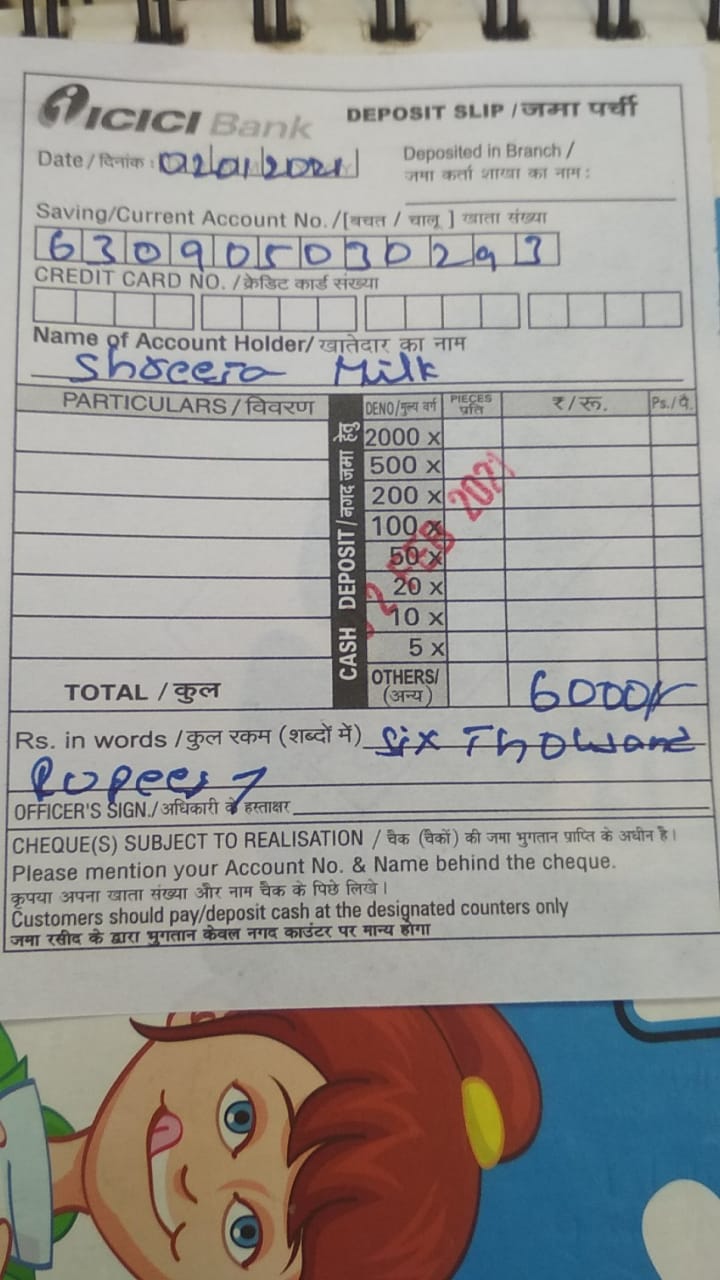 ICICI Bank DEPOSIT SLIP / जमा पर्ची
Date / दिनांक : 02012021 Deposited in Branch /
जमा कर्ता शाखा का नाम :
Saving/Current Account No. /[बचत / चालू ] खाता संख्या
630905030293
CREDIT CARD NO. / क्रेडिट कार्ड संख्या
Name of Account Holder/ खातेदार का नाम
Milk
PARTICULARS / विवरण CASH DEPOSIT / नगद जमा हेतु DENO/मुल्य वर्ग PIECES प्रति ₹/रू. Ps./पै.
2000 x
500 x
200 x
100 x
50 x
20 x
10 x
5 x
2 FEB 2021
TOTAL / कुल OTHERS/ (अन्य) 6000/-
Rs. in words / कुल रकम (शब्दों में) Six Thousand
Rupees
OFFICER'S SIGN./ अधिकारी के हस्ताक्षर
CHEQUE(S) SUBJECT TO REALISATION / चैक (चैकों) की जमा भुगतान प्राप्ति के अधीन है।
Please mention your Account No. & Name behind the cheque.
कृपया अपना खाता संख्या और नाम चैक के पिछे लिखे।
Customers should pay/deposit cash at the designated counters only
जमा रसीद के द्वारा भुगतान केवल नगद काउंटर पर मान्य होगा